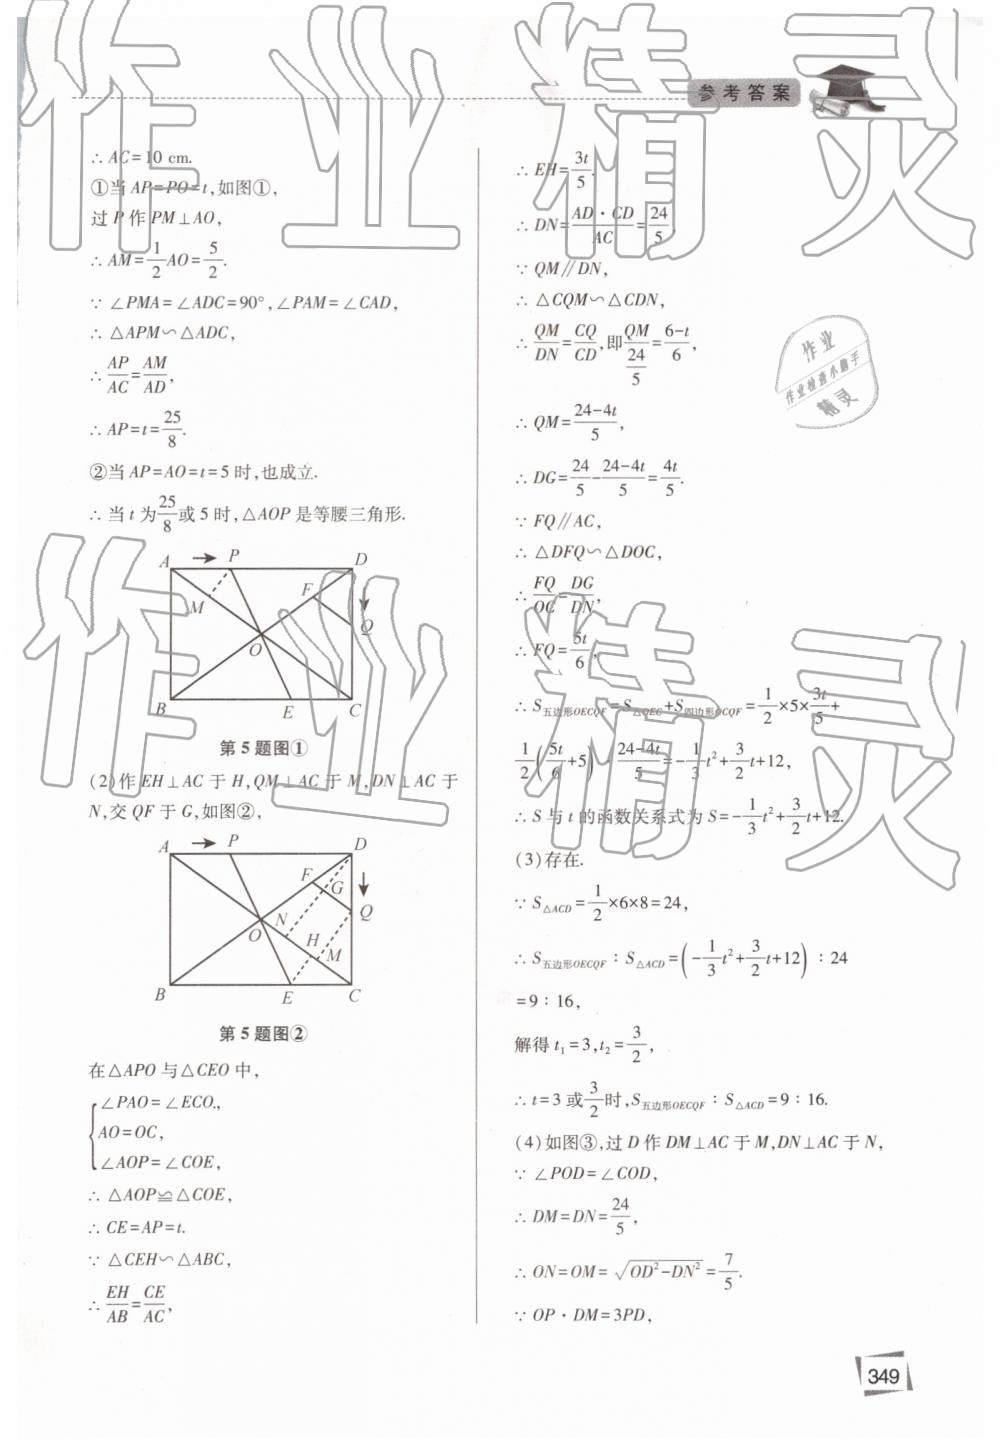 参考答案
∴ AC=10 cm.
①当 AP=PO=t,如图①,
过 P 作 PM⊥AO,
∴ AM=1/2 AO=5/2.
∵ ∠PMA=∠ADC=90°,∠PAM=∠CAD,
∴ △APM∽△ADC,
∴ AP/AC=AM/AD,
∴ AP=t=25/8.
②当 AP=AO=t=5 时,也成立.
∴ 当 t 为25/8或 5 时,△AOP 是等腰三角形.
A P D
F
M
Q
O
B E C
第 5 题图①
(2)作 EH⊥AC 于 H,QM⊥AC 于 M,DN⊥AC 于
N,交 QF 于 G,如图②,
A P D
F G
Q
O N H
M
B E C
第 5 题图②
在△APO 与△CEO 中,
∠PAO=∠ECO.,
AO=OC,
∠AOP=∠COE,
∴ △AOP≌△COE,
∴ CE=AP=t.
∵ △CEH∽△ABC,
∴ EH/AB=CE/AC,
∴ EH=3t/5.
∴ DN=AD·CD/AC=24/5.
∵ QM∥DN,
∴ △CQM∽△CDN,
∴ QM/DN=CQ/CD,即QM/(24/5)=(6-t)/6,
∴ QM=(24-4t)/5,
∴ DG=24/5-(24-4t)/5=4t/5.
∵ FQ∥AC,
∴ △DFQ∽△DOC,
∴ FQ/OC=DG/DN,
∴ FQ=5t/6,
∴ S五边形OECQF=S△OEC+S四边形OCQF=1/2×5×3t/5+
1/2(5t/6+5)·(24-4t)/5=-1/3t²+3/2t+12,
∴ S 与 t 的函数关系式为 S=-1/3t²+3/2t+12.
(3)存在.
∵ S△ACD=1/2×6×8=24,
∴ S五边形OECQF∶S△ACD=(-1/3t²+3/2t+12)∶24
=9∶16,
解得 t₁=3,t₂=3/2,
∴ t=3 或3/2时,S五边形OECQF∶S△ACD=9∶16.
(4)如图③,过 D 作 DM⊥AC 于 M,DN⊥AC 于 N,
∵ ∠POD=∠COD,
∴ DM=DN=24/5,
∴ ON=OM=√(OD²-DN²)=7/5.
∵ OP·DM=3PD,
349
作业精灵
作业精灵
作业
作业检查小助手
精灵